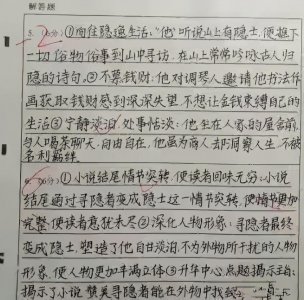 解答题
5. -2分）①向往隐逸生活，"他"听说山上有隐士，便抛下
一切俗物俗事到山中寻访，在山上常常吟咏古人归
隐的诗句。②不慕钱财：他对调琴人邀请他书法作
画获取钱财感到深深失望，不想让金钱束缚自己的
生活③宁静淡泊，处事恬淡：他坐在人家的屋舍前
与人喝茶聊天，自由自在，他虽为商人却洞察人生，不被
名利羁绊。
6. 6分）①小说结尾情节突转，使读者回味无穷：小说
结尾通过寻隐者变成隐士这一情节突转，使情节更加
完整，使读者意犹未尽②深化人物形象：寻隐者最终
变成隐士，塑造了他自甘淡泊，不为外物所干扰的人物
形象，使人物更加丰满立体③升华中心，点题揭示主旨：
揭示了小说赞美寻隐者能在外物中找